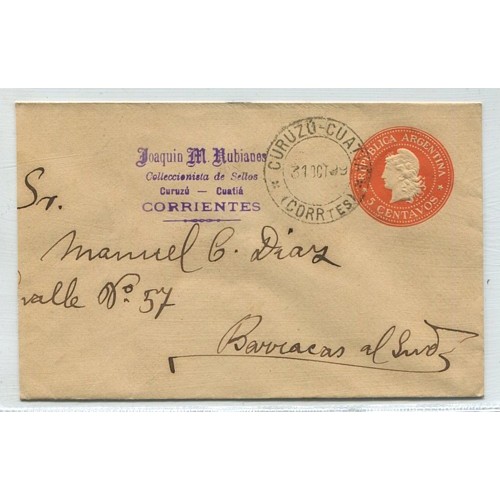 Joaquin M. Nubianes
Colleccionista de Sellos
Curuzú — Cuatiá
CORRIENTES
CURUZÚ-CUAT
31 OCT 99
(CORRTES)
REPUBLICA ARGENTINA
5 CENTAVOS
Sr.
Manuel C. Diaz
valle No. 57
Barracas al Sud